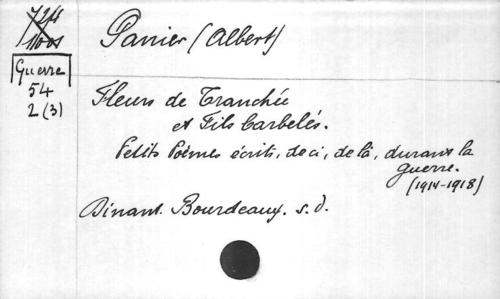 Panier (Albert)
Guerre
54
2 (3)
Fleurs de Tranchée
et Fils barbelés.
Petits Poèmes écrits, de ci, de là, durant la
Guerre.
(1914-1918)
Dinant. Bourdeaux. s. d.